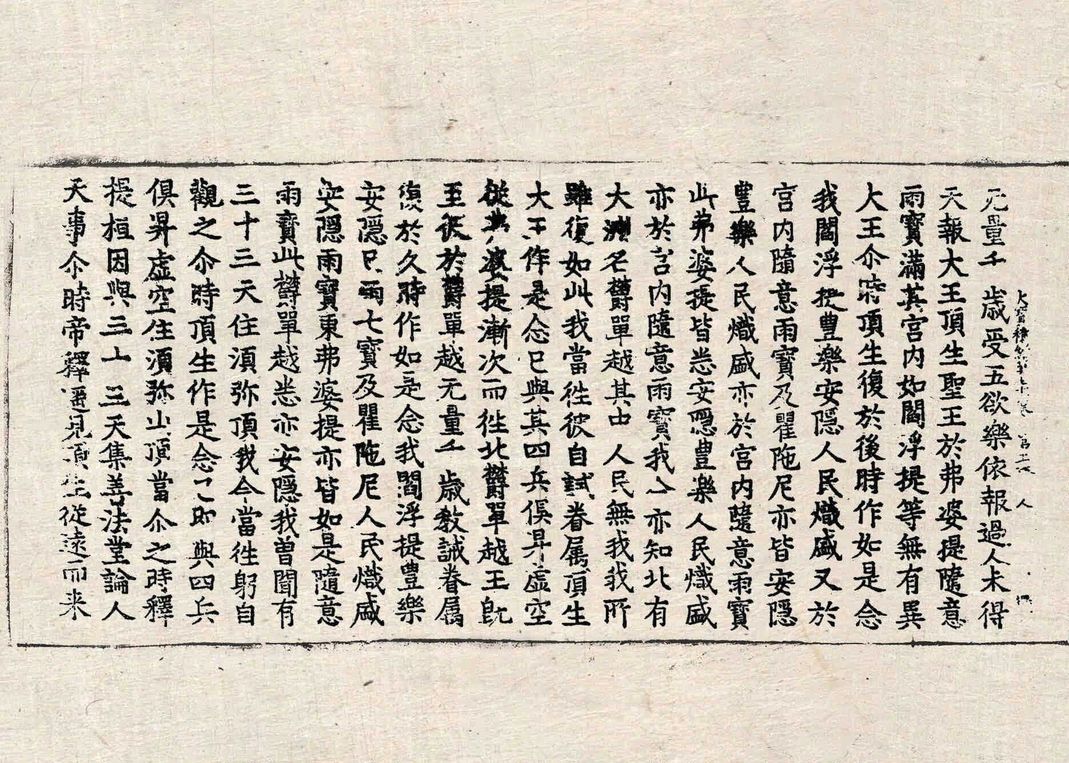 无量千歲受五欲樂依報過人未得
天報大王頂生聖王於弗婆提隨意
雨寳滿其宮内如閻浮提等無有異
大王尒時頂生復於後時作如是念
我閻浮提豊樂安隱人民熾盛又於
宮内隨意雨寳及瞿陁尼亦皆安隱
豊樂人民熾盛亦於宮内隨意雨寳
此弗婆提皆悉安隱豊樂人民熾盛
亦於宮内隨意雨寳我亦知北有
大洲名欝單越其中人民無我我所
雖復如此我當徃彼自試眷属頂生
大王作是念已與其四兵俱昇虛空
從弗婆提漸次而徃北欝單越王旣
至彼於欝單越无量千歲教誡眷属
復於久時作如是念我閻浮提豊樂
安隱只雨七寳及瞿陁尼人民熾盛
安隱雨寳東弗婆提亦皆如是隨意
雨寳此欝單越悉亦安隱我曾聞有
三十三天住湏弥頂我今當徃躬自
觀之尒時頂生作是念已即與四兵
俱昇虛空住湏弥山頂當尒之時釋
提桓因與三十三天集善法堂論人
天事尒時帝釋遥見頂生從遠而来